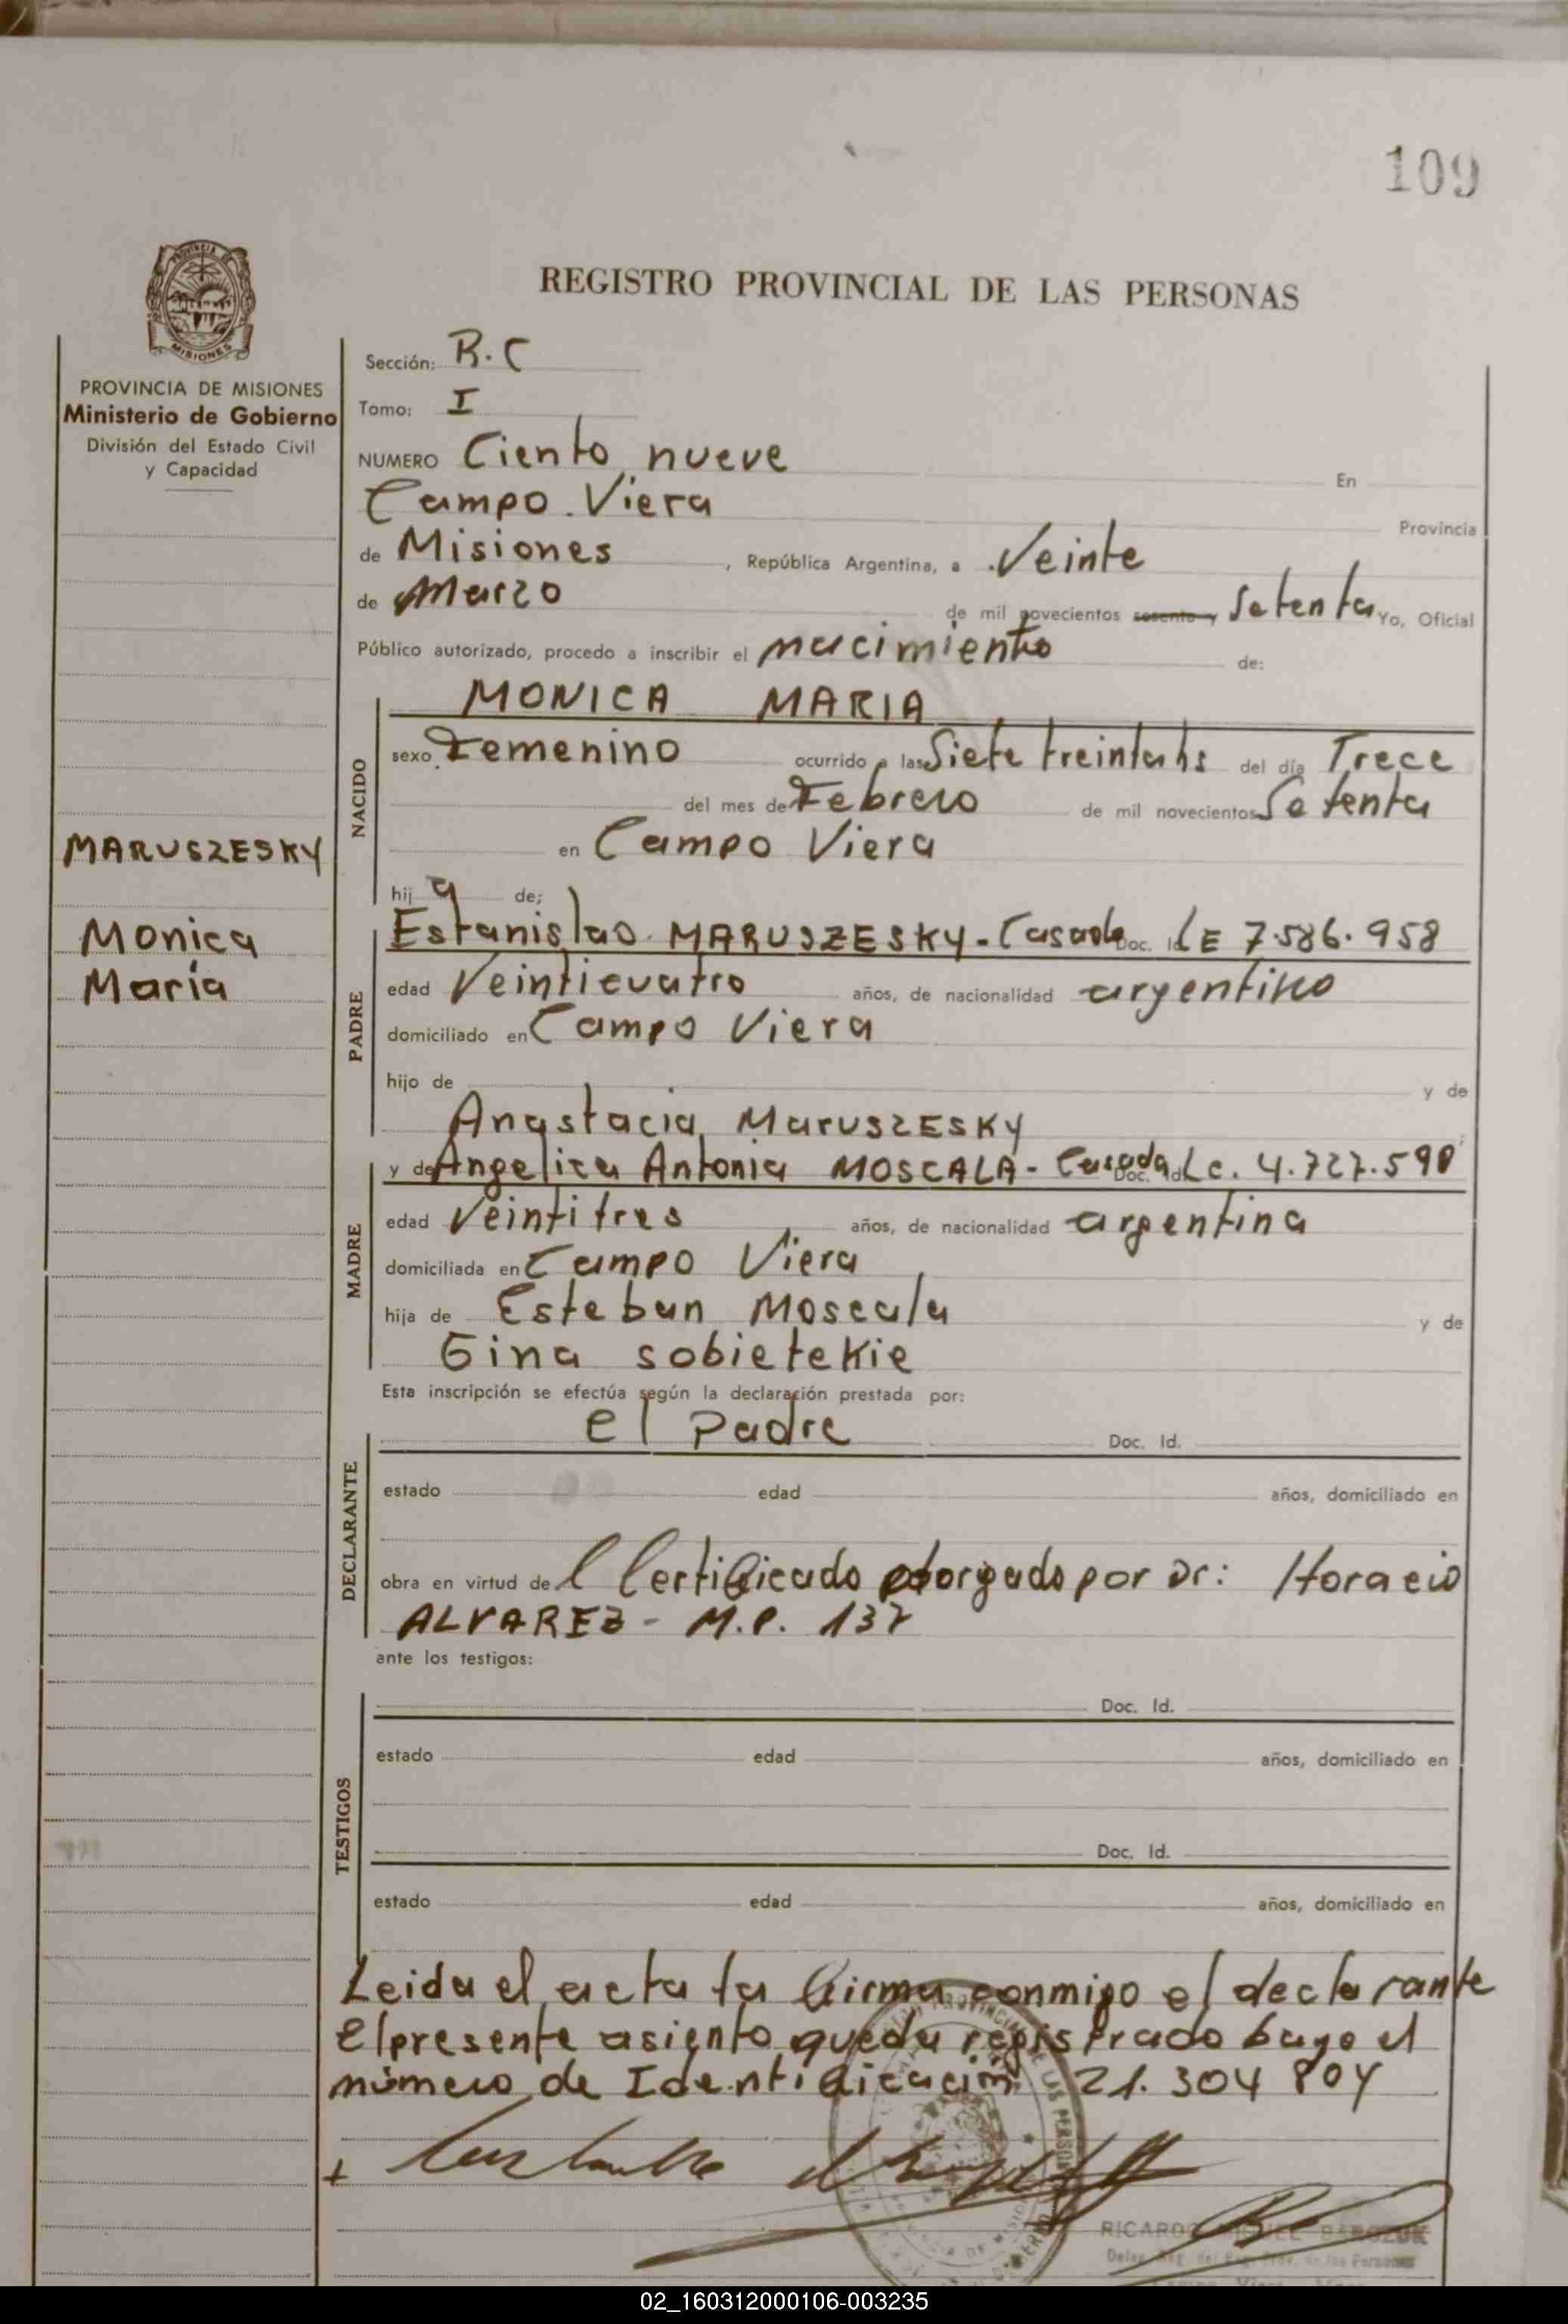 109
REGISTRO PROVINCIAL DE LAS PERSONAS
MISIONES
PROVINCIA DE MISIONES
Ministerio de Gobierno
División del Estado Civil
y Capacidad
Sección: R.C
Tomo: I
NUMERO Ciento nueve En
Campo Viera Provincia
de Misiones, República Argentina, a Veinte
de Marzo de mil novecientos sesenta y Setenta Yo, Oficial
Público autorizado, procedo a inscribir el nacimiento de:
NACIDO
MONICA MARIA
sexo Femenino ocurrido a las Siete treinta hs del día Trece
del mes de Febrero de mil novecientos Setenta
en Campo Viera
hija de;
MARUSZESKY
Monica
María
PADRE
Estanislao MARUSZESKY - Casado Doc. Id. LE 7.586.958
edad Veinticuatro años, de nacionalidad argentino
domiciliado en Campo Viera
hijo de y de
Anastacia MaruszESKY
MADRE
y de Angelica Antonia MOSCALA - Casada Doc. Id. Lc. 4.727.590
edad Veintitres años, de nacionalidad argentina
domiciliada en Campo Viera
hija de Esteban Moscala y de
Gina sobietekie
Esta inscripción se efectúa según la declaración prestada por:
DECLARANTE
el Padre Doc. Id.
estado edad años, domiciliado en
obra en virtud del Certificado otorgado por Dr: Horacio
ALVAREZ - M.P. 137
ante los testigos:
TESTIGOS
Doc. Id.
estado edad años, domiciliado en
Doc. Id.
estado edad años, domiciliado en
Leida el acta la firma conmigo el declarante
El presente asiento queda registrado bayo el
número de Identificación 21.304 804
RICARDO MIGUEL
02_160312000106-003235